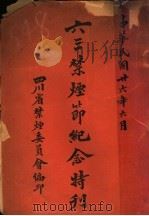 中華民國廿六年六月
六三禁煙節紀念特刊
四川省禁煙委員會編印